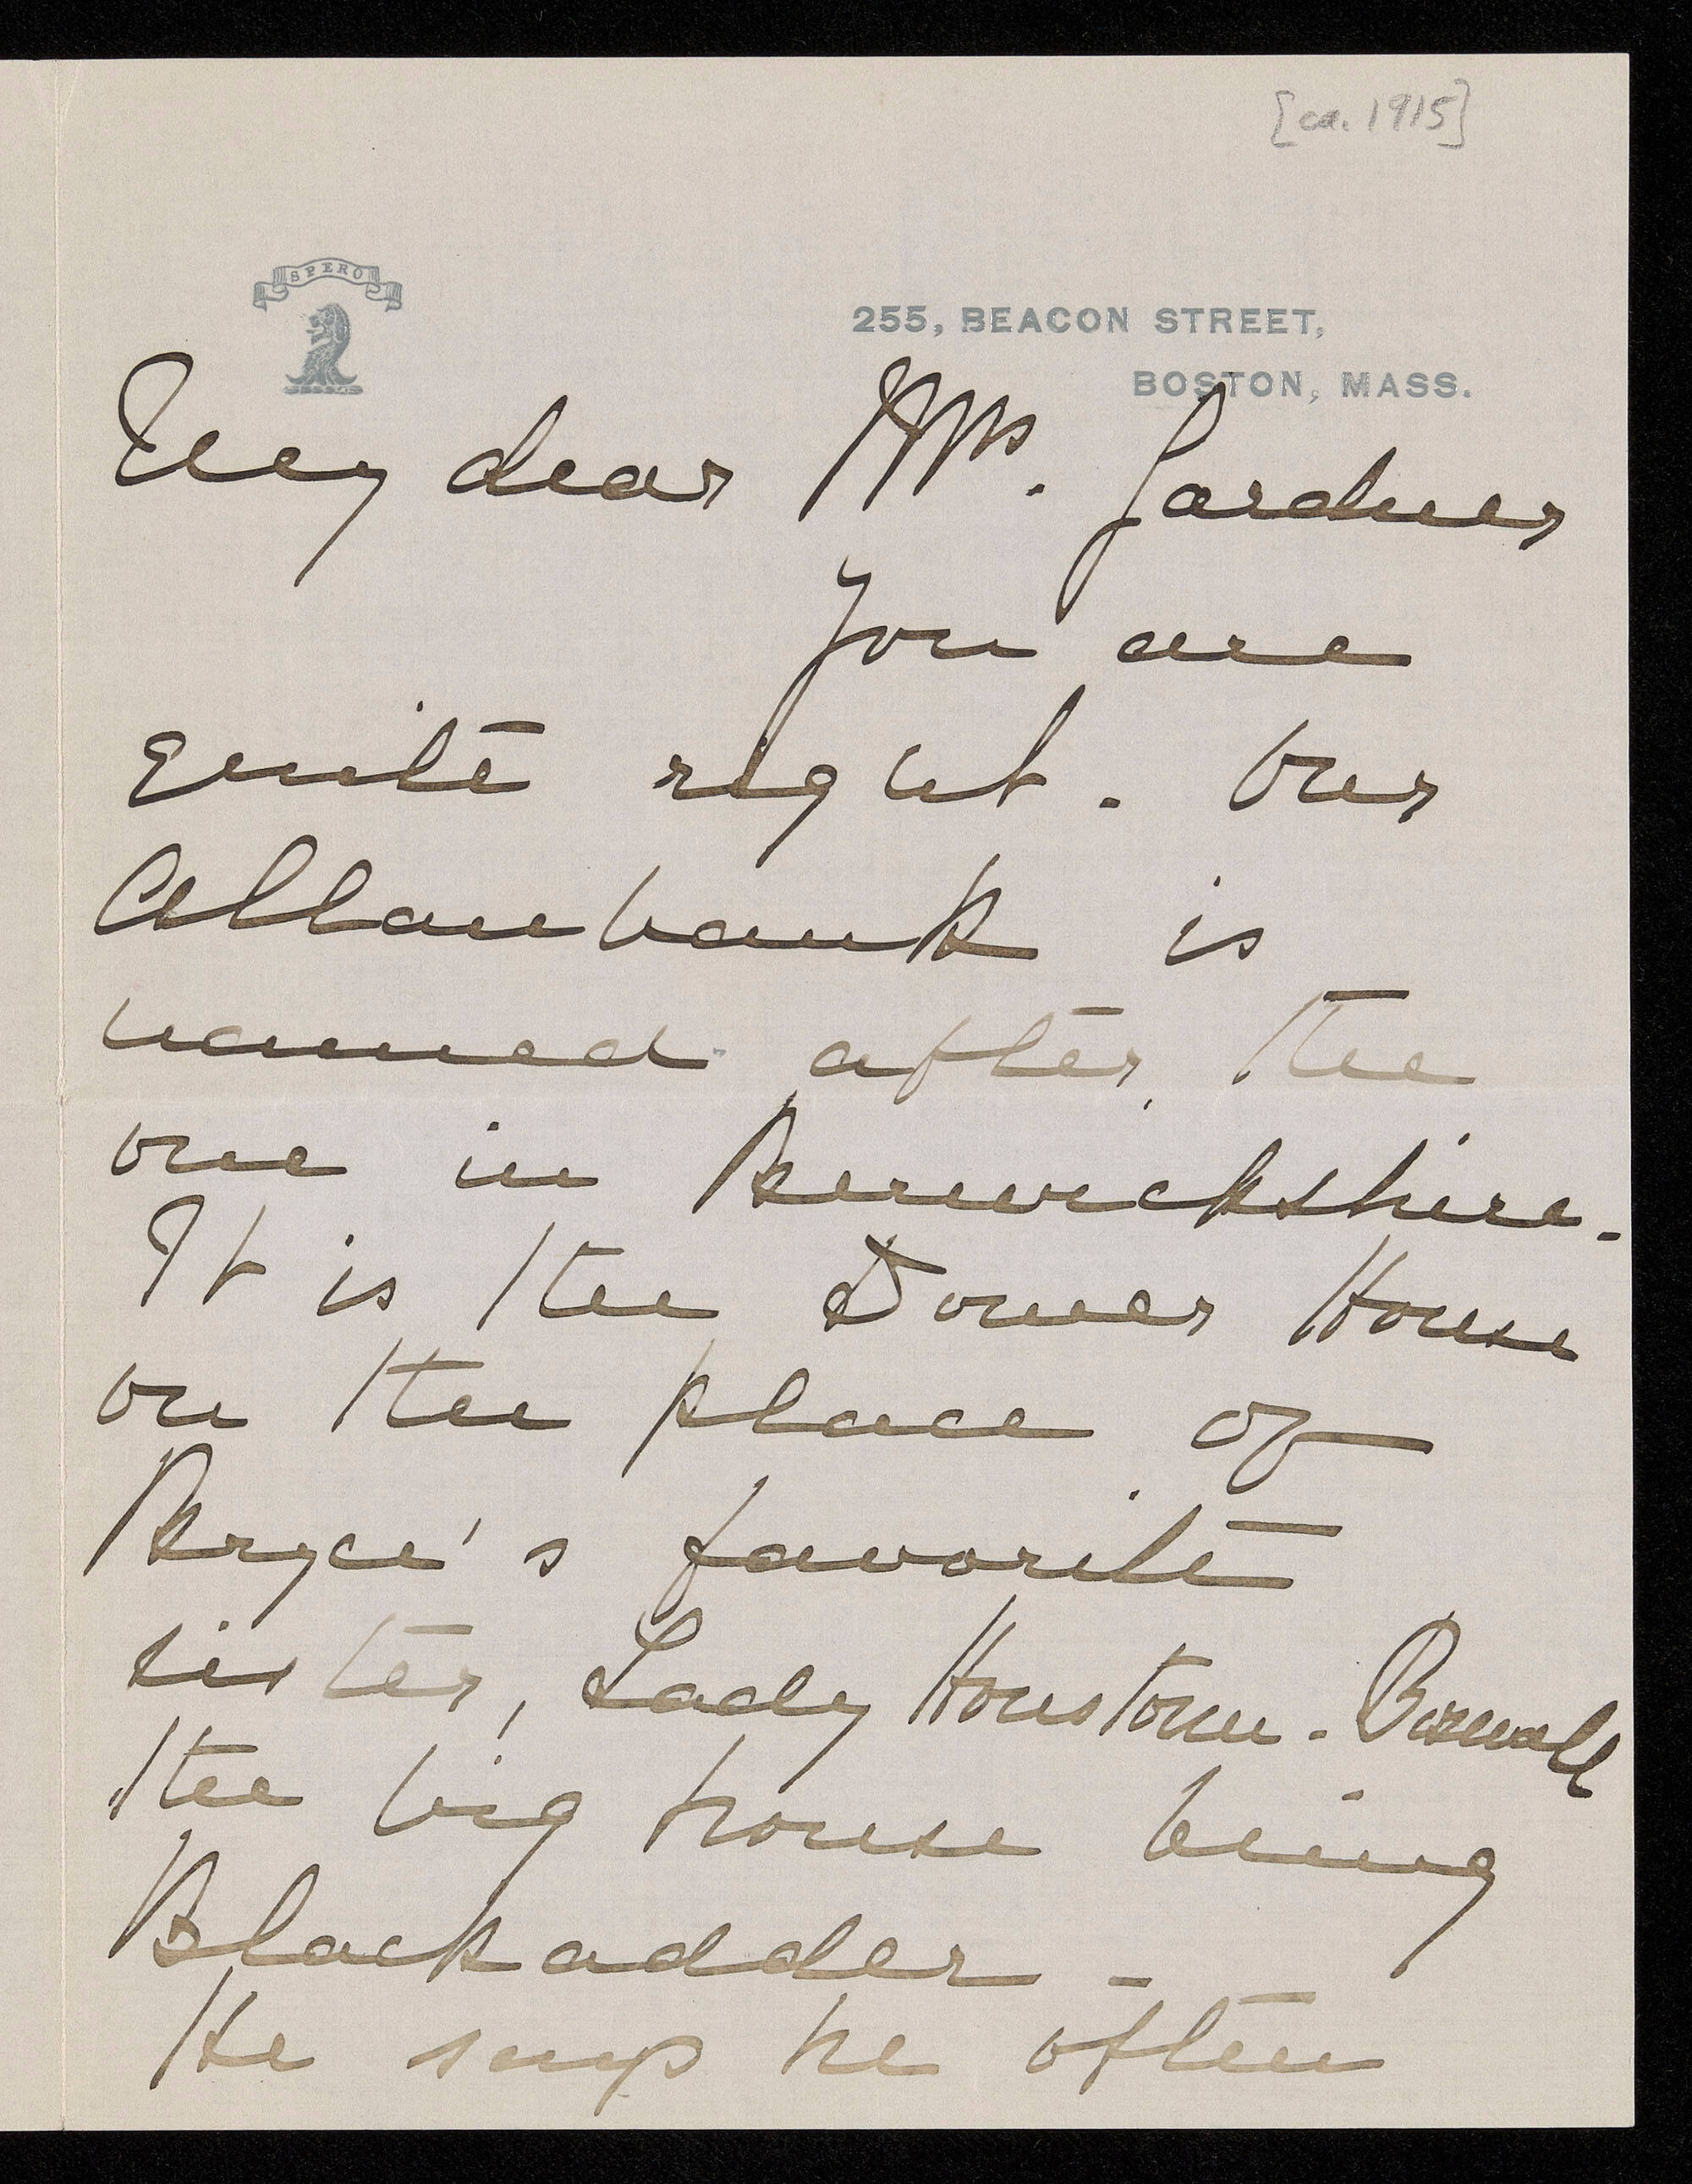 [ca. 1915]
SPERO
255, BEACON STREET,
BOSTON, MASS.
My dear Mrs. Gardner
You are
quite right. Our
Allanbank is
named after the
one in Berwickshire.
It is the Dower House
on the place of
Bryce's favorite
sister, Lady Houstoun-Boswall
the big house being
Blackadder -
He says he often